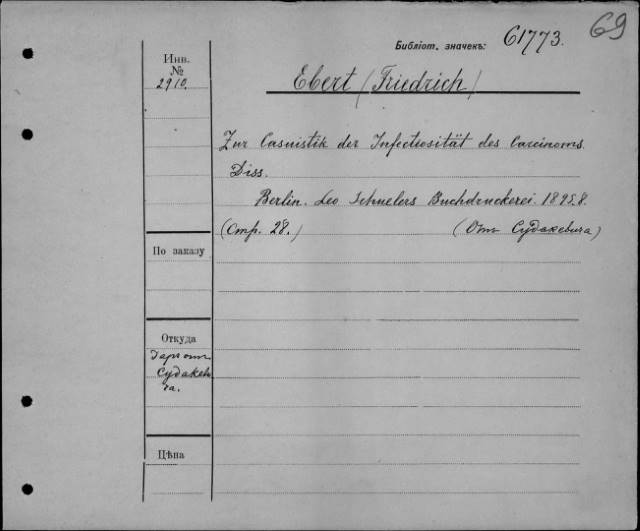 69
Библіот. значекъ: 61773.
Инв.
№
2910.
Ebert (Friedrich)
Zur Casuistik der Infectiosität des Carcinoms.
Diss.
Berlin. Leo Schuelers Buchdruckerei. 1895. 8.
(Стр. 28.) (Отъ Судакевича)
По заказу
Откуда
Даръ отъ
Судакеви
ча.
Цѣна